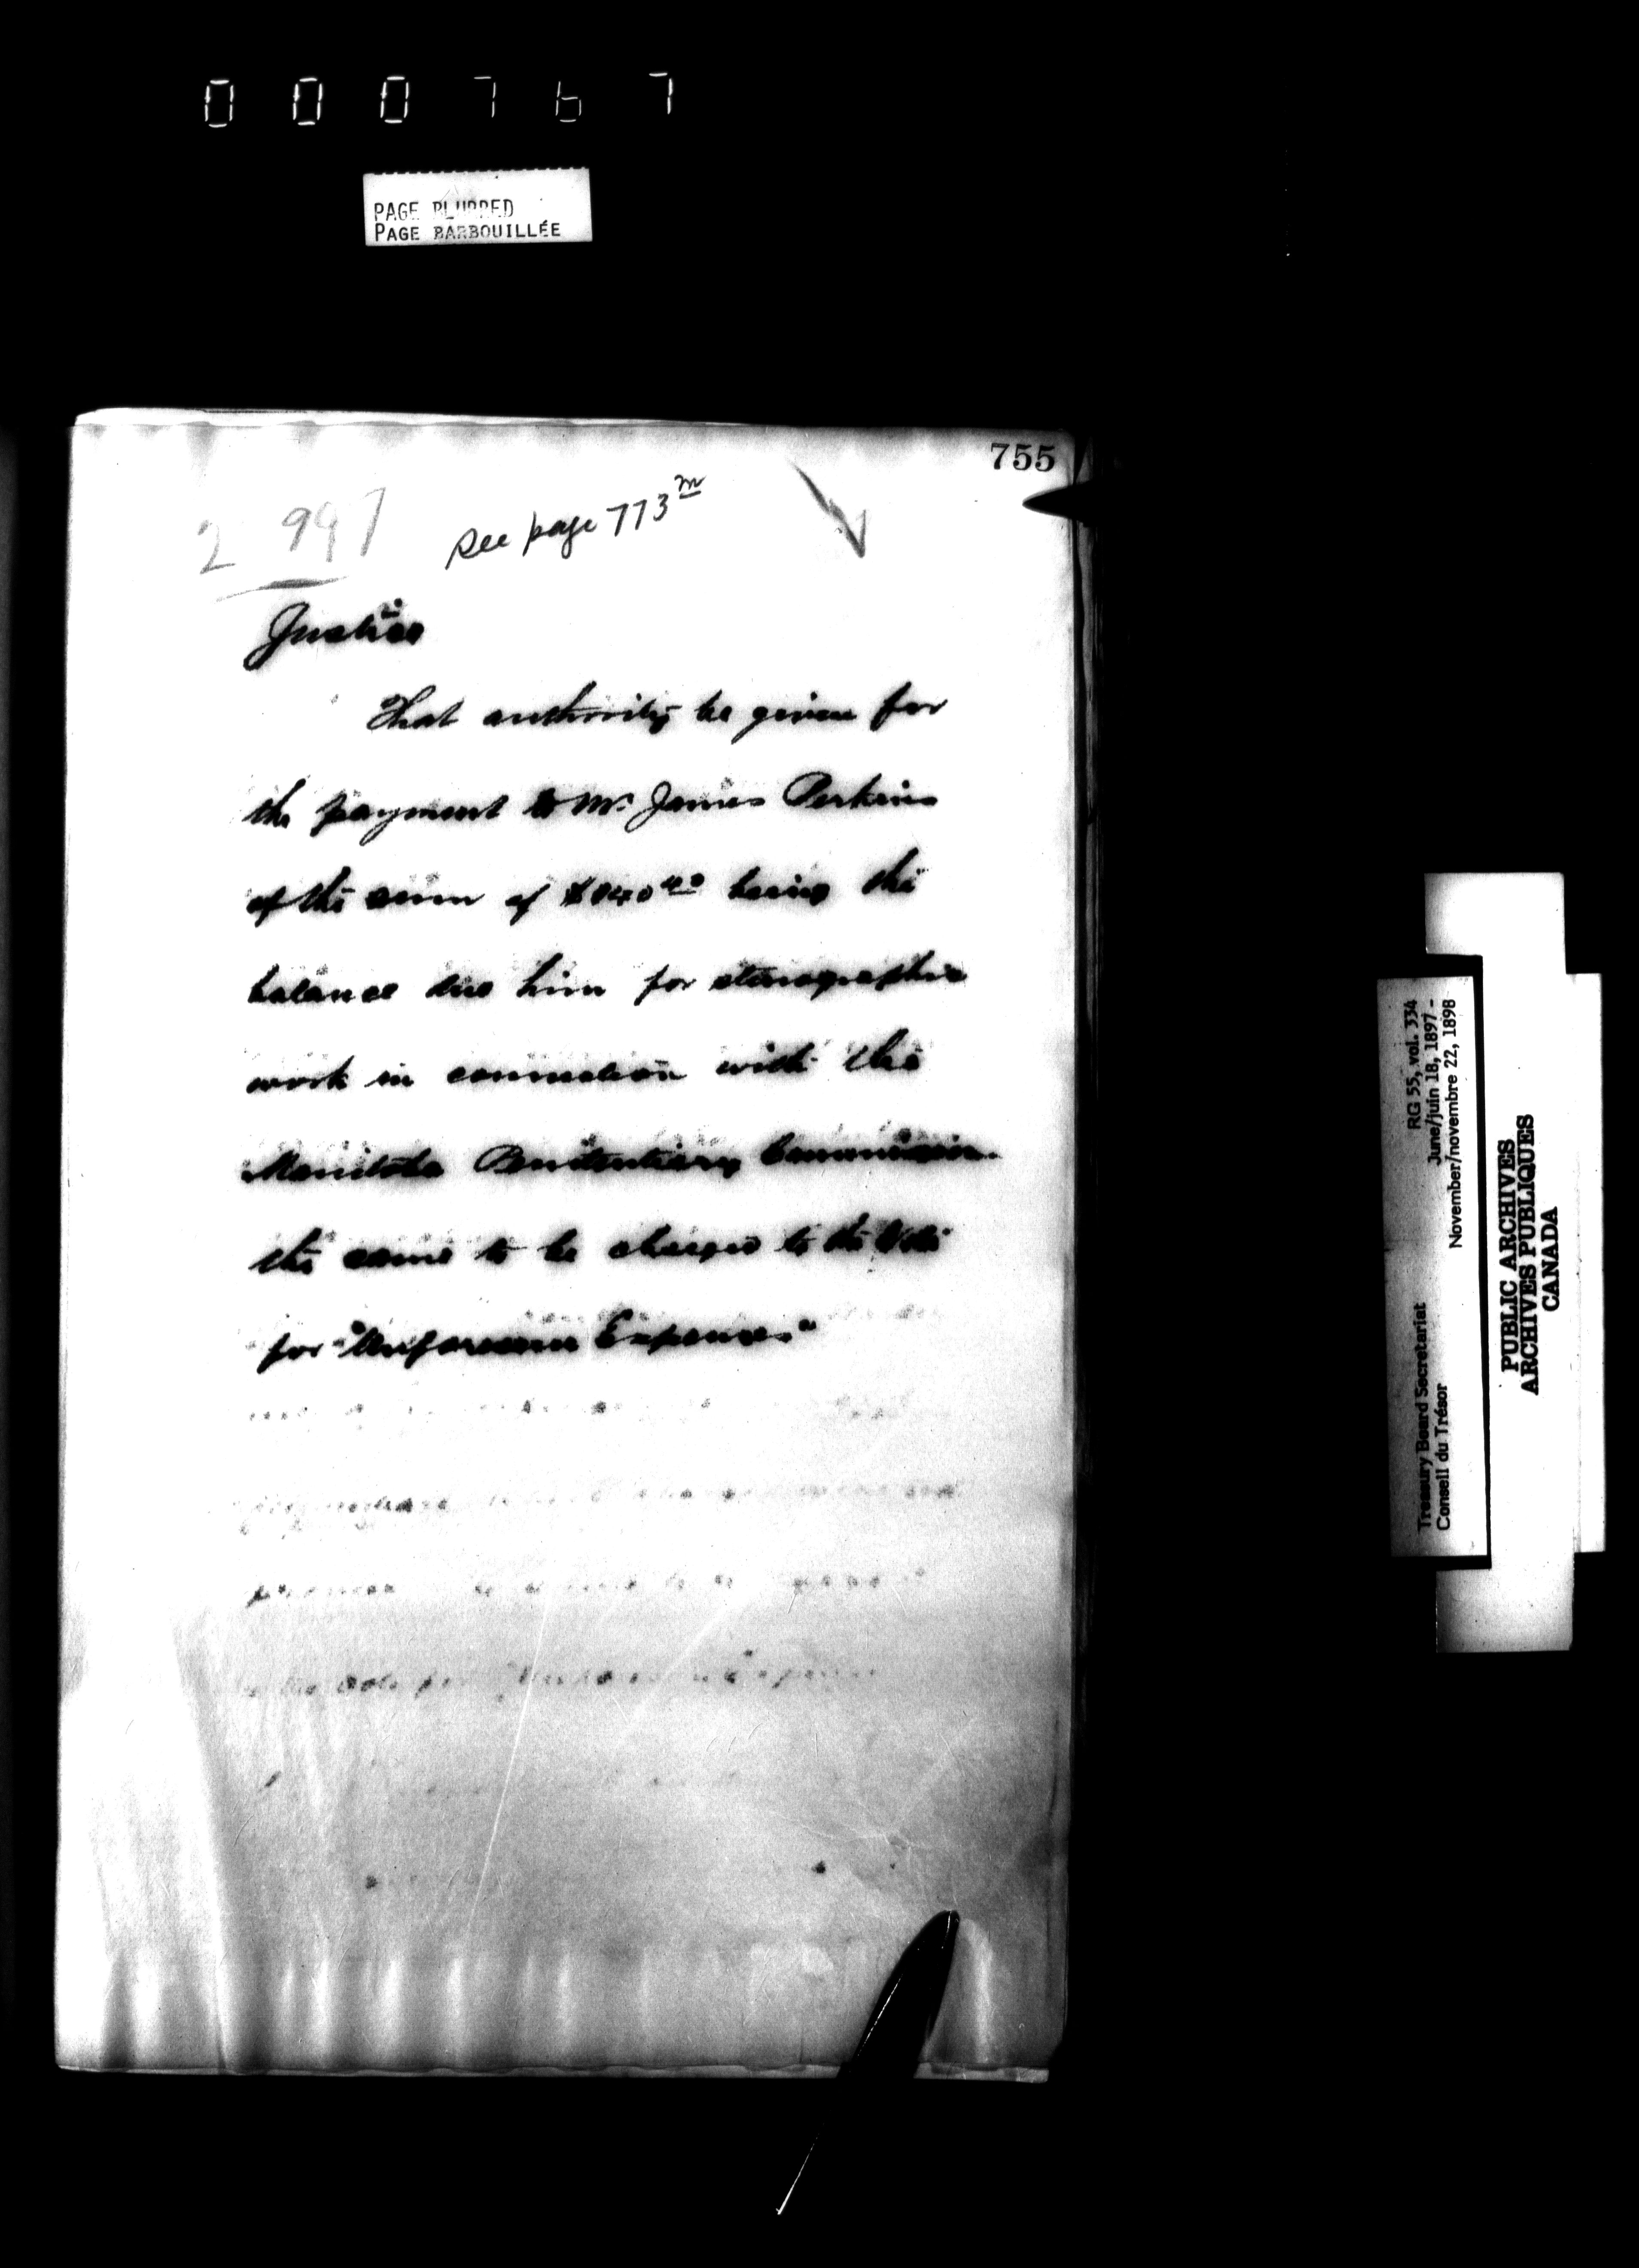 000767
PAGE BLURRED
PAGE BARBOUILLÉE
755
2 947
see page 773 m
Justice
That authority be given for
the payment to Mr. James Perkins
of the sum of being the
balance due him for stenographic
work in connection with the
Manitoba Penitentiary Commission
the same to be charged to the Vote
for "Unforeseen Expenses"
RG 55, vol. 334
June/juin 18, 1897 -
November/novembre 22, 1898
Treasury Board Secretariat
Conseil du Trésor
PUBLIC ARCHIVES
ARCHIVES PUBLIQUES
CANADA